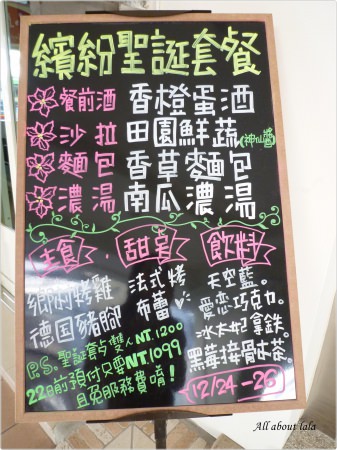 繽紛聖誕套餐
餐前酒 香橙蛋酒
沙拉 田園鮮蔬(神仙醬)
麵包 香草麵包
濃湯 南瓜濃湯
主食 甜品 飲料
鄉村烤雞
德国豬腳
法式烤
布蕾
天空藍。
愛恋巧克力。
冰木妃拿鉄。
黑莓接骨木茶。
P.S. 聖誕套夕雙人NT.1200
22日前預付只要NT1099
且免服務費唷!
(12/24-26)
All about lala